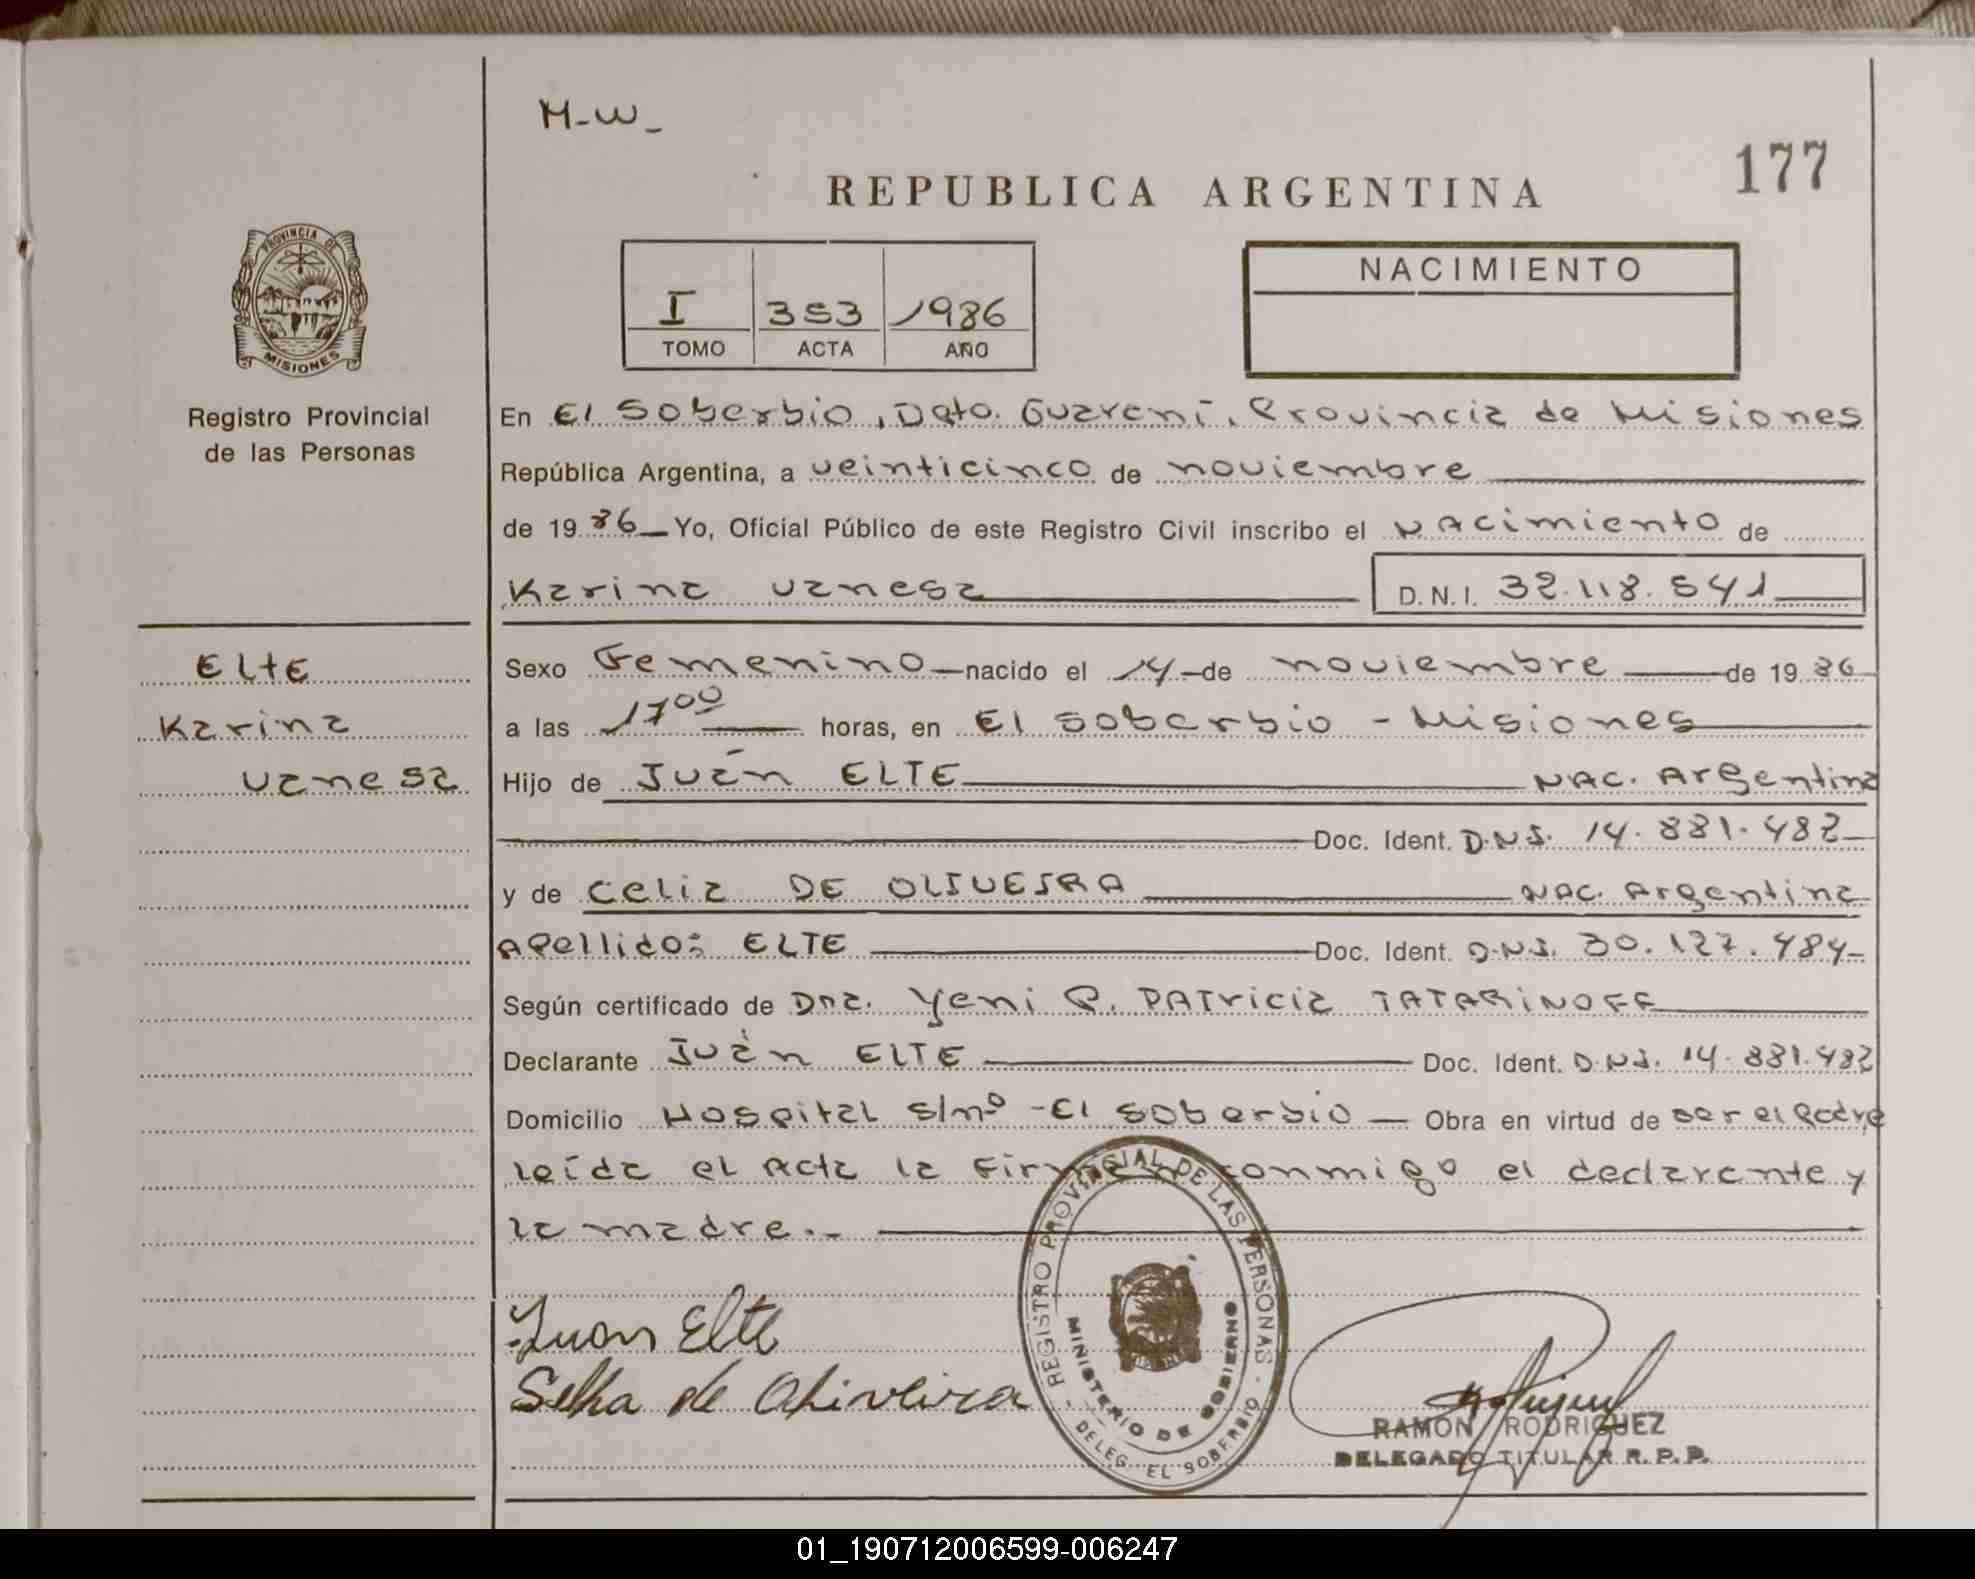 M-W-
177
REPUBLICA ARGENTINA
PROVINCIA DE
MISIONES
I 353 1986
TOMO ACTA AÑO
NACIMIENTO
Registro Provincial
de las Personas
En El Soberbio, Dpto. Guaraní, Provincia de Misiones
República Argentina, a veinticinco de noviembre
de 1986 Yo, Oficial Público de este Registro Civil inscribo el Nacimiento de
Karina Vanesa D.N.I. 32.118.541
ELTE
Karina
Vanesa
Sexo Femenino nacido el 14 de noviembre de 1986
a las 17 00 horas, en El Soberbio - Misiones
Hijo de Juán ELTE NAC. Argentina
Doc. Ident. D.N.I. 14.881.482
y de Celia DE OLIVEIRA NAC. Argentina
Apellido: ELTE Doc. Ident. D.N.I. 30.127.484
Según certificado de Dra. Yeni P. PATricia TATARINOFF
Declarante Juán ELTE Doc. Ident. D.N.I. 14.881.482
Domicilio Hospital s/nº - El Soberbio Obra en virtud de ser el Padre
leída el Acta la firman conmigo el declarante y
la madre.-
Juan Elte
Selha de Oliveira
REGISTRO PROVINCIAL DE LAS PERSONAS
MINISTERIO DE GOBIERNO
DELEG. EL SOBERBIO
RAMON RODRIGUEZ
DELEGADO TITULAR R.P.P.
01_190712006599-006247